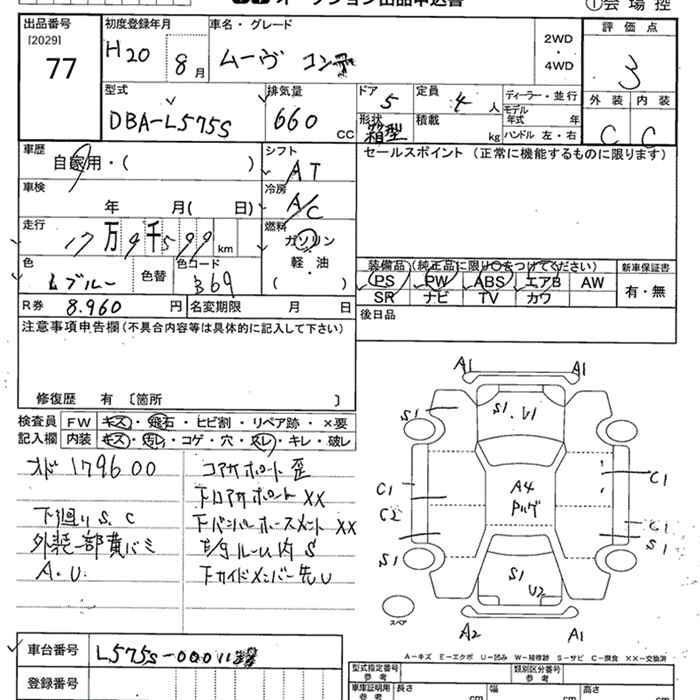 オークション出品申込書
①会場控
出品番号 [2029] 77
初度登録年月 H20 8月
車名・グレード ムーヴ コンテ
2WD・4WD
評価点 3
外装 C 内装 C
型式 DBA-L575S
排気量 660 CC
ドア 5
形状 箱型
定員 4人
積載 kg
ディーラー・並行
モデル年式 年
ハンドル 左・右
車歴 自家用・( )
シフト AT
セールスポイント (正常に機能するものに限ります)
車検 年 月( 日)
冷房 A/C
走行 17万9千599 km
燃料 ガソリン 軽・油 ( )
色 ムブルー 色替
色コード B69
装備品 (純正品に限り○をつけてください)
PS PW ABS エアB AW
SR ナビ TV カワ
新車保証書 有・無
R券 8.960 円
名変期限 月 日
後日品
注意事項申告欄(不具合内容等は具体的に記入して下さい)
修復歴 有〔箇所 〕
検査員記入欄
FW キズ・飛石・ヒビ割・リペア跡・×要
内装 キズ・汚れ・コゲ・穴・スレ・キレ・破レ
オド 179600
下廻りS.C
外装一部黄バミ
A.U.
コアサポート歪
下ロアサポート XX
下バンパーホースメント XX
E/Gルーム内 S
下サイドメンバー先U
A1 A1
S1 S1.U1
C1 A4 C1
C2 C1
S1 S1
S1 U2
A2 A1
スペア
A-キズ E-エクボ U-凹み W-補修跡 S-サビ C-腐食 XX-交換済
車台番号 L575S-00011
登録番号
型式指定番号 参考
類別区分番号 参考
車庫証明用 参考 長さ cm 幅 cm 高さ cm